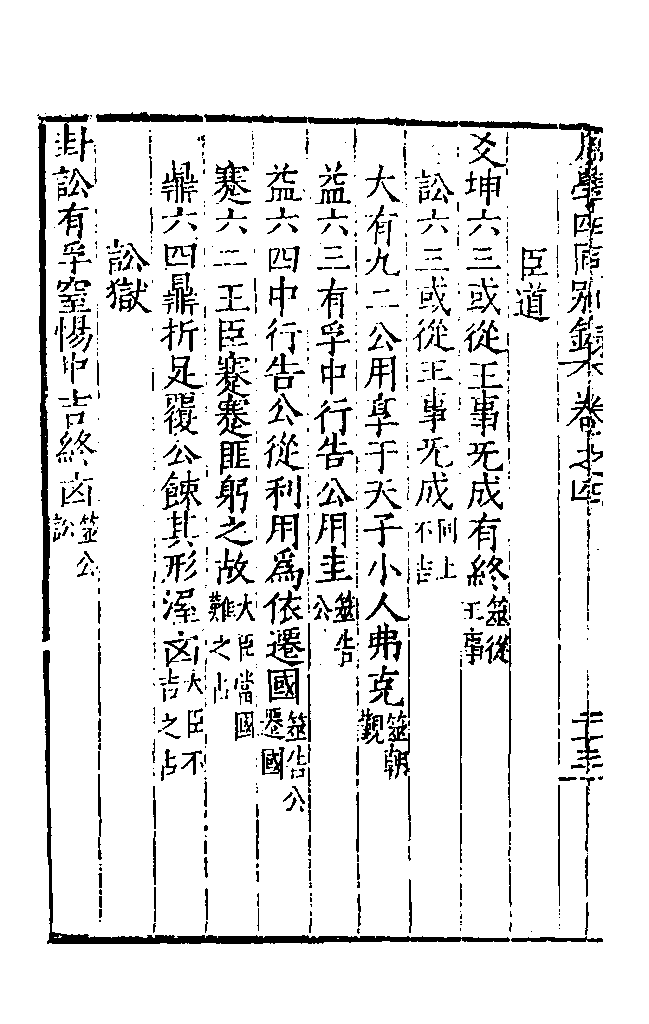 臣道
爻坤六三或從王事无成有終筮從王事
訟六三或從王事无成同上不吉
大有九二公用享于天子小人弗克筮朝覲
益六三有孚中行告公用圭筮告公
益六四中行告公從利用爲依遷國筮告公遷國
蹇六二王臣蹇蹇匪躬之故大臣當國難之占
鼎六四鼎折足覆公餗其形渥㐫大臣不吉之占
訟獄
卦訟有孚窒惕中吉終㐫筮公訟